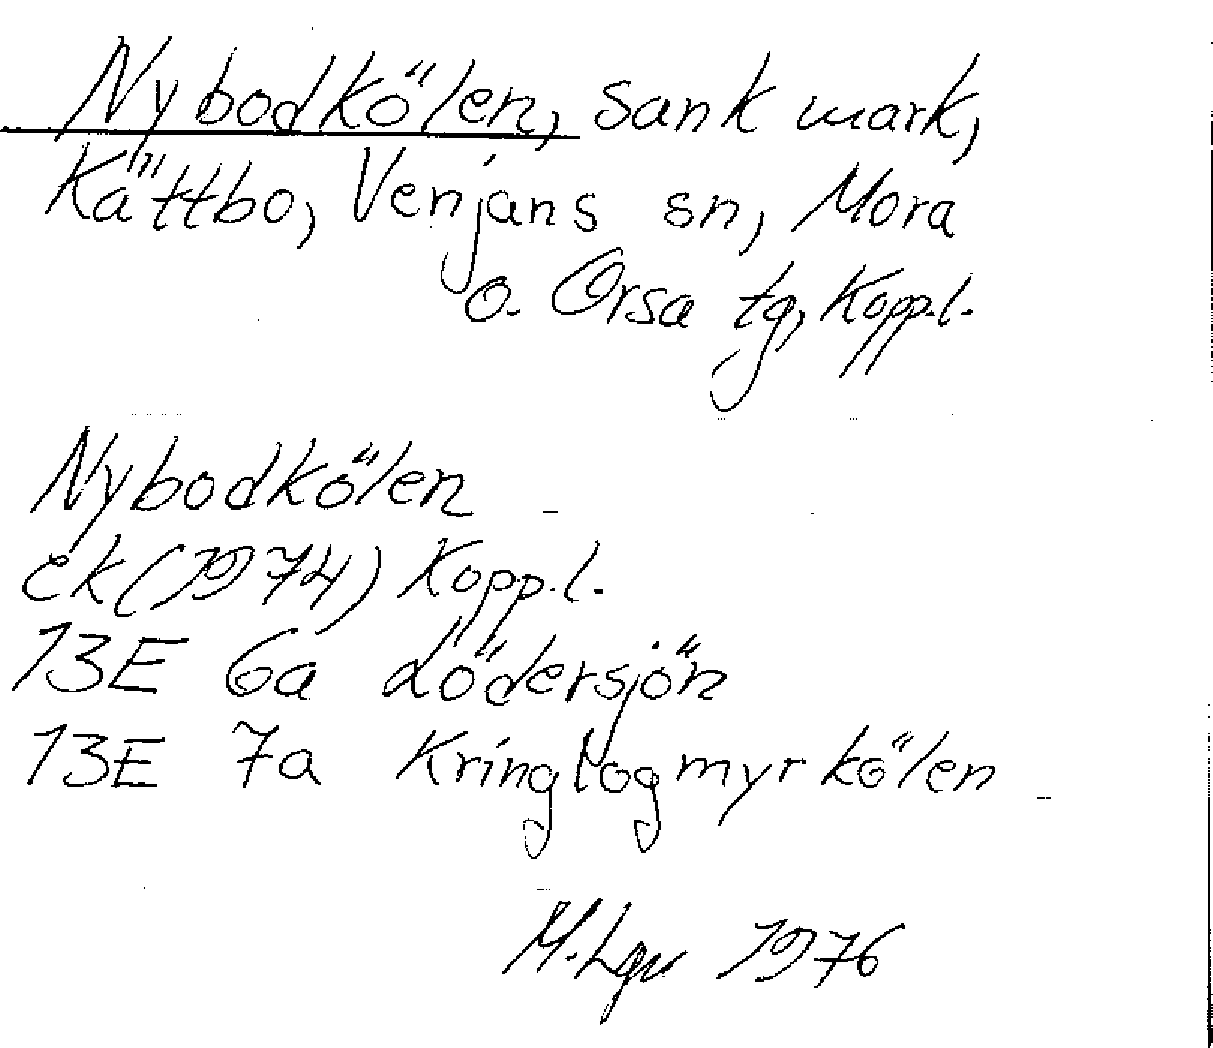 Nybodkölen, sank mark,
Kättbo, Venjans sn, Mora
o. Orsa tg, Kopp.l.
Nybodkölen
ek (1974) Kopp.l.
13E 6a Lödersjön
13E 7a Kringtogmyrkölen
1976